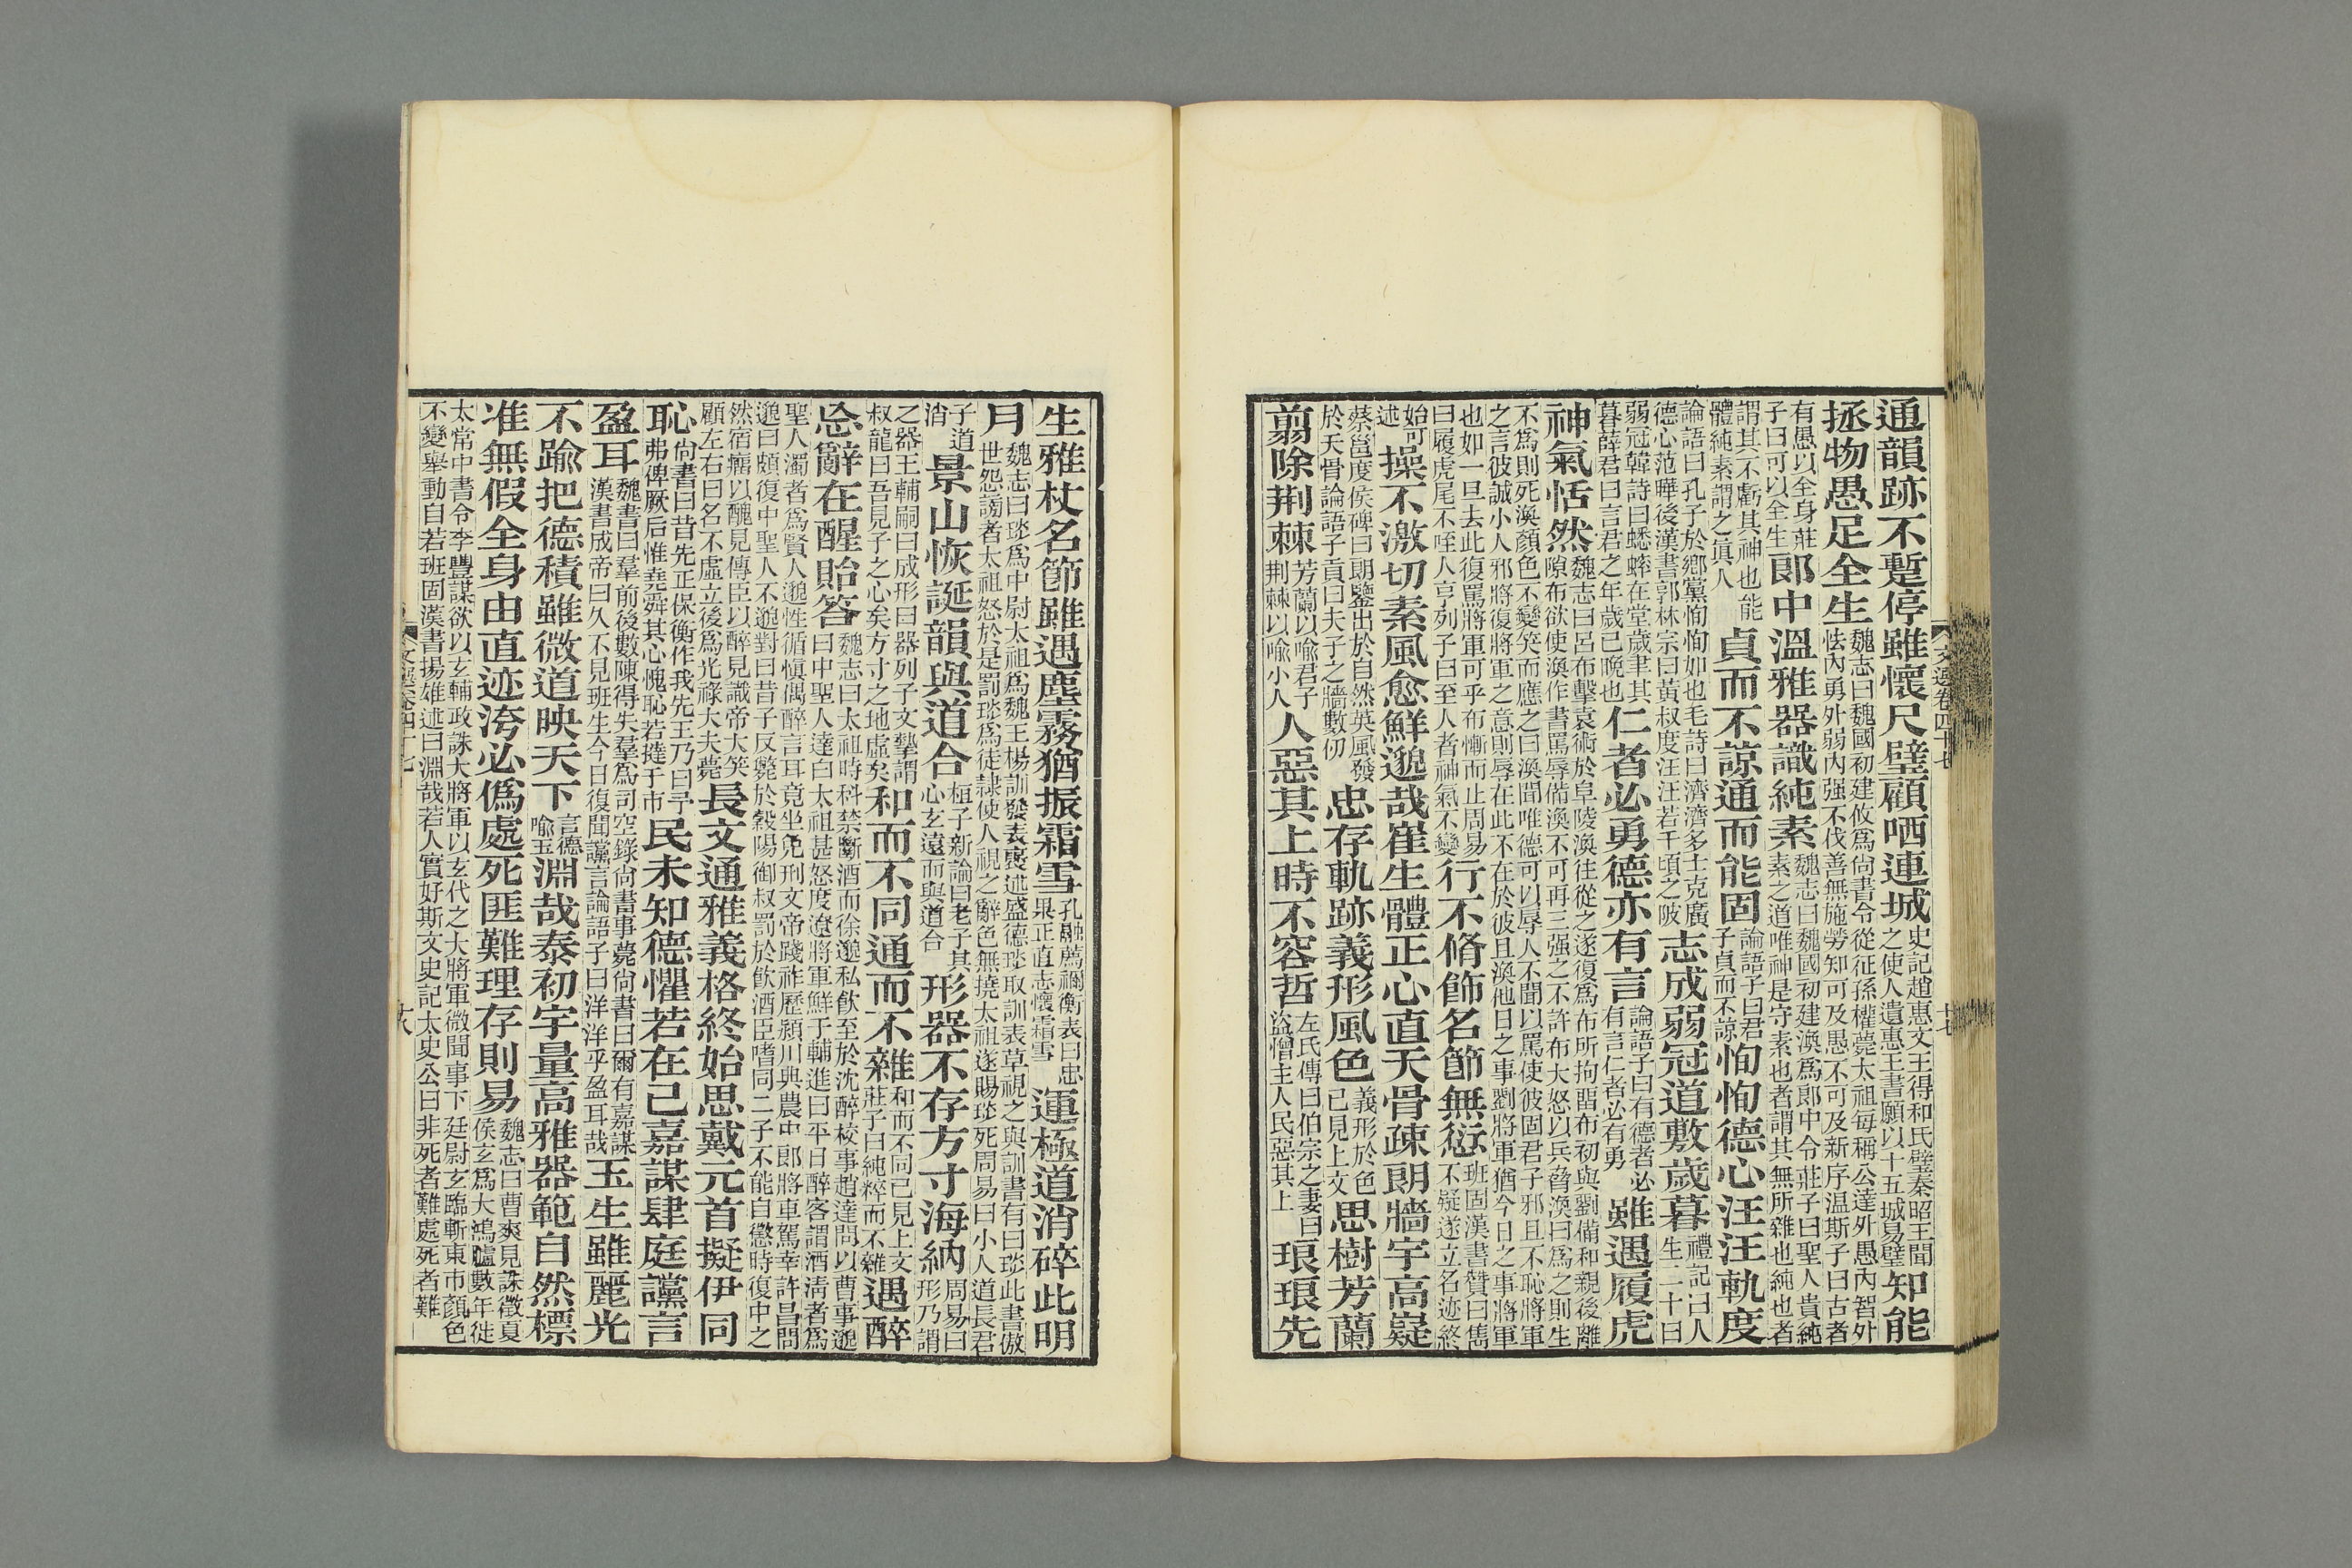 文選卷四十七
十七
通韻跡不蹔停雖懷尺璧顧哂連城史記趙惠文王得和氏璧秦昭王聞之使人遺惠王書願以十五城易璧知能
拯物愚足全生魏志曰魏國初建攸爲尚書令從征孫權薨太祖每稱公達外愚內智外怯內勇外弱內强不伐善無施勞知可及愚不可及新序温斯子曰古者
有愚以全身莊子曰可以全生郎中溫雅器識純素魏志曰魏國初建渙爲郎中令莊子曰聖人貴純素之道唯神是守素也者謂其無所雜也純也者
謂其不虧其神也能體純素謂之眞人貞而不諒通而能固論語子曰君子貞而不諒恂恂德心汪汪軌度
論語曰孔子於鄉黨恂恂如也毛詩曰濟濟多士克廣德心范曄後漢書郭林宗曰黃叔度汪汪若千頃之陂志成弱冠道敷歲暮禮記曰人生二十曰
弱冠韓詩曰蟋蟀在堂歲聿其暮薛君曰言君之年歲已晚也仁者必勇德亦有言論語子曰有德者必有言仁者必有勇雖遇履虎
神氣恬然魏志曰呂布擊袁術於阜陵渙往從之遂復爲布所拘畱布初與劉備和親後離隙布欲使渙作書罵辱備渙不可再三强之不許布大怒以兵脅渙曰爲之則生
不爲則死渙顏色不變笑而應之曰渙聞唯德可以辱人不聞以罵使彼固君子邪且不恥將軍之言彼誠小人邪將復將軍之意則辱在此不在於彼且渙他日之事劉將軍猶今日之事將軍
也如一旦去此復罵將軍可乎布慚而止周易曰履虎尾不咥人亨列子曰至人者神氣不變行不脩飾名節無愆班固漢書贊曰雋不疑遂立名迹終
始可述操不激切素風愈鮮邈哉崔生體正心直天骨疎朗牆宇高嶷
蔡邕度侯碑曰朗鑒出於自然英風發於天骨論語子貢曰夫子之牆數仞忠存軌跡義形風色義形於色已見上文思樹芳蘭
翦除荆棘芳蘭以喻君子荆棘以喻小人人惡其上時不容哲左氏傳曰伯宗之妻曰盜憎主人民惡其上琅琅先
生雅杖名節雖遇塵霧猶振霜雪孔融薦禰衡表曰忠果正直志懷霜雪運極道消碎此明
月魏志曰琰爲中尉太祖爲魏王楊訓發表襃述盛德琰取訓表草視之與訓書有曰琰此書傲世怨謗者太祖怒於是罰琰爲徒隸使人視之辭色無撓太祖遂賜琰死周易曰小人道長君
子道消景山恢誕韻與道合桓子新論曰老子其心玄遠而與道合形器不存方寸海納周易曰形乃謂
之器王輔嗣曰成形曰器列子文摯謂叔龍曰吾見子之心矣方寸之地虛矣和而不同通而不雜和而不同已見上文莊子曰純粹而不雜遇醉
忘辭在醒貽答魏志曰太祖時科禁斷酒而徐邈私飮至於沈醉校事趙達問以曹事邈曰中聖人達白太祖甚怒度遼將軍鮮于輔進曰平日醉客謂酒淸者爲
聖人濁者爲賢人邈性循愼偶醉言耳竟坐免刑文帝踐祚歷潁川典農中郎將車駕幸許昌問邈曰頗復中聖人不邈對曰昔子反斃於穀陽御叔罰於飮酒臣嗜同二子不能自懲時復中之
然宿瘤以醜見傳臣以醉見識帝大笑顧左右曰名不虛立後爲光祿大夫薨長文通雅義格終始思戴元首擬伊同
恥尙書曰昔先正保衡作我先王乃曰予弗俾厥后惟堯舜其心愧恥若撻于市民未知德懼若在己嘉謀肆庭讜言
盈耳魏書曰羣前後數陳得失羣爲司空錄尙書事薨尙書曰爾有嘉謀漢書成帝曰久不見班生今日復聞讜言論語子曰洋洋乎盈耳哉玉生雖麗光
不踰把德積雖微道映天下言德喻玉淵哉泰初宇量高雅器範自然標
准無假全身由直迹洿必僞處死匪難理存則易魏志曰曹爽見誅徵夏侯玄爲大鴻臚數年徙
太常中書令李豐謀欲以玄輔政誅大將軍以玄代之大將軍微聞事下廷尉玄臨斬東市顏色不變舉動自若班固漢書揚雄述曰淵哉若人實好斯文史記太史公曰非死者難處死者難
文選卷四十七
十八